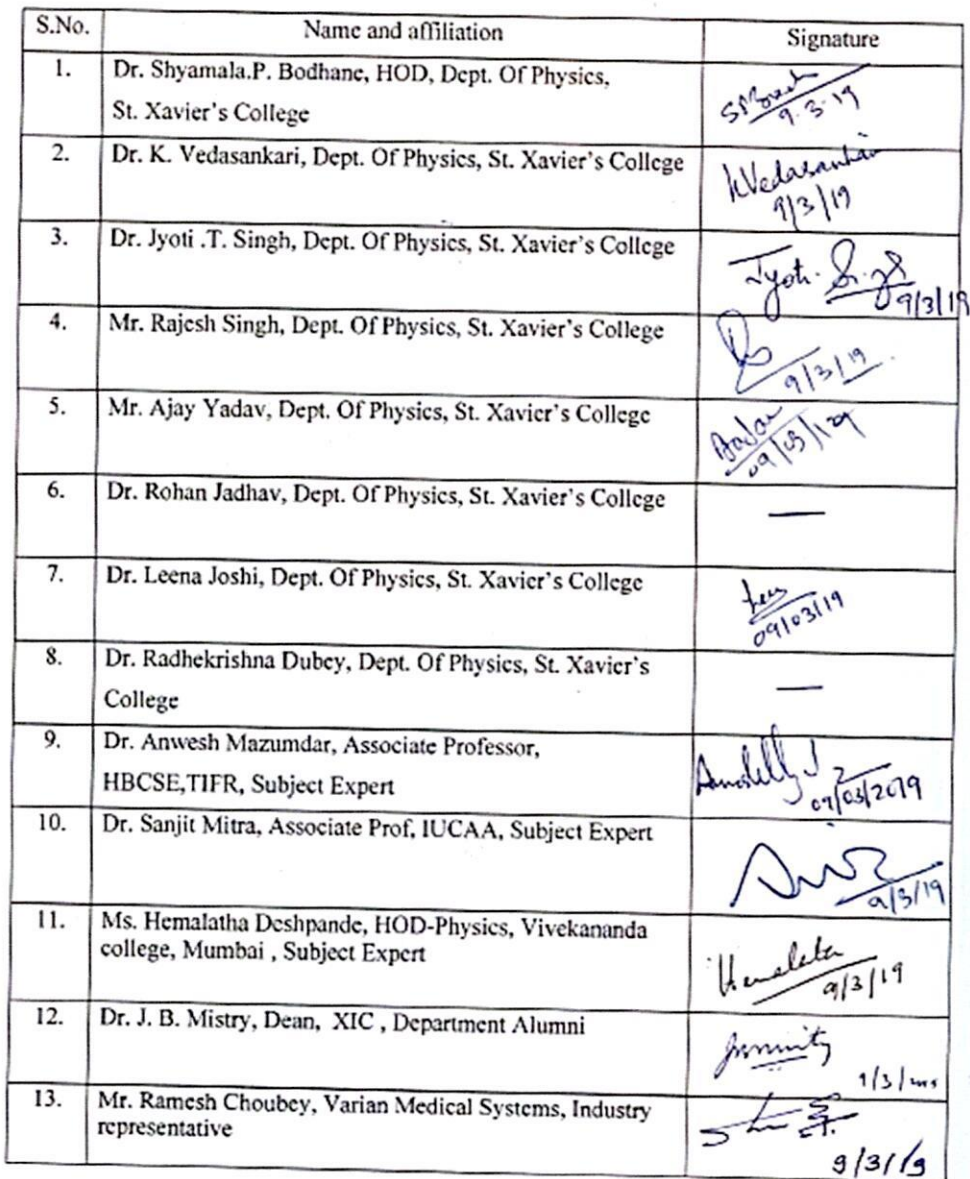 S.No. Name and affiliation Signature
1. Dr. Shyamala.P. Bodhane, HOD, Dept. Of Physics,
St. Xavier's College
9.3.19
2. Dr. K. Vedasankari, Dept. Of Physics, St. Xavier's College
KVedasankari
9/3/19
3. Dr. Jyoti .T. Singh, Dept. Of Physics, St. Xavier's College
Jyoti. Singh
9/3/19
4. Mr. Rajesh Singh, Dept. Of Physics, St. Xavier's College
9/3/19
5. Mr. Ajay Yadav, Dept. Of Physics, St. Xavier's College
09/03/129
6. Dr. Rohan Jadhav, Dept. Of Physics, St. Xavier's College —
7. Dr. Leena Joshi, Dept. Of Physics, St. Xavier's College
09/03/19
8. Dr. Radhekrishna Dubey, Dept. Of Physics, St. Xavier's
College —
9. Dr. Anwesh Mazumdar, Associate Professor,
HBCSE,TIFR, Subject Expert
09/03/2019
10. Dr. Sanjit Mitra, Associate Prof, IUCAA, Subject Expert
9/3/19
11. Ms. Hemalatha Deshpande, HOD-Physics, Vivekananda
college, Mumbai , Subject Expert
Hemalata
9/3/19
12. Dr. J. B. Mistry, Dean, XIC , Department Alumni
13. Mr. Ramesh Choubey, Varian Medical Systems, Industry
representative
9/3/19